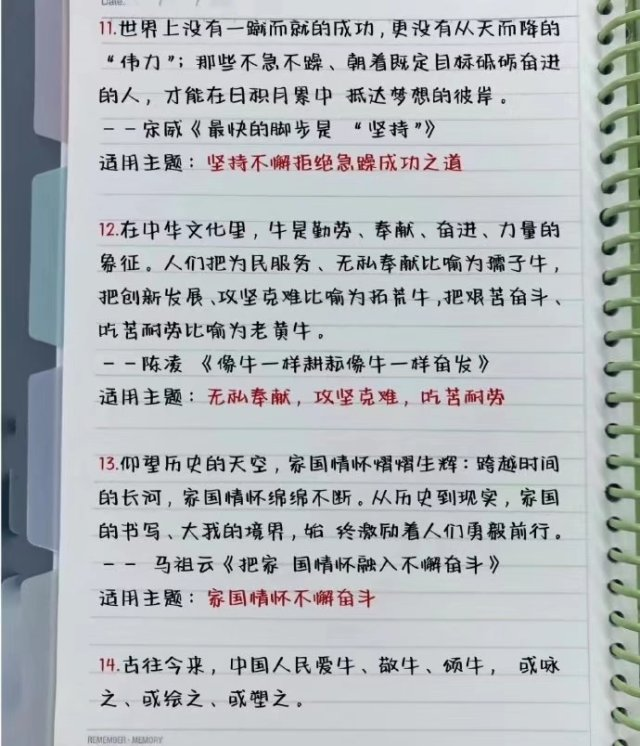 Date: / /
11.世界上没有一蹴而就的成功,更没有从天而降的
“伟力”;那些不急不躁、朝着既定目标砥砺奋进
的人,才能在日积月累中 抵达梦想的彼岸。
--宗威《最快的脚步是 “坚持”》
适用主题:坚持不懈拒绝急躁成功之道
12.在中华文化里,牛是勤劳、奉献、奋进、力量的
象征。人们把为民服务、无私奉献比喻为孺子牛,
把创新发展、攻坚克难比喻为拓荒牛,把艰苦奋斗、
吃苦耐劳比喻为老黄牛。
--陈凌 《像牛一样耕耘像牛一样奋发》
适用主题:无私奉献,攻坚克难,吃苦耐劳
13.仰望历史的天空,家国情怀熠熠生辉:跨越时间
的长河,家国情怀绵绵不断。从历史到现实,家国
的书写、大我的境界,始 终激励着人们勇毅前行。
-- 马祖云《把家 国情怀融入不懈奋斗》
适用主题:家国情怀不懈奋斗
14.古往今来,中国人民爱牛、敬牛、颂牛, 或咏
之、或绘之、或塑之。
REMEMBER · MEMORY